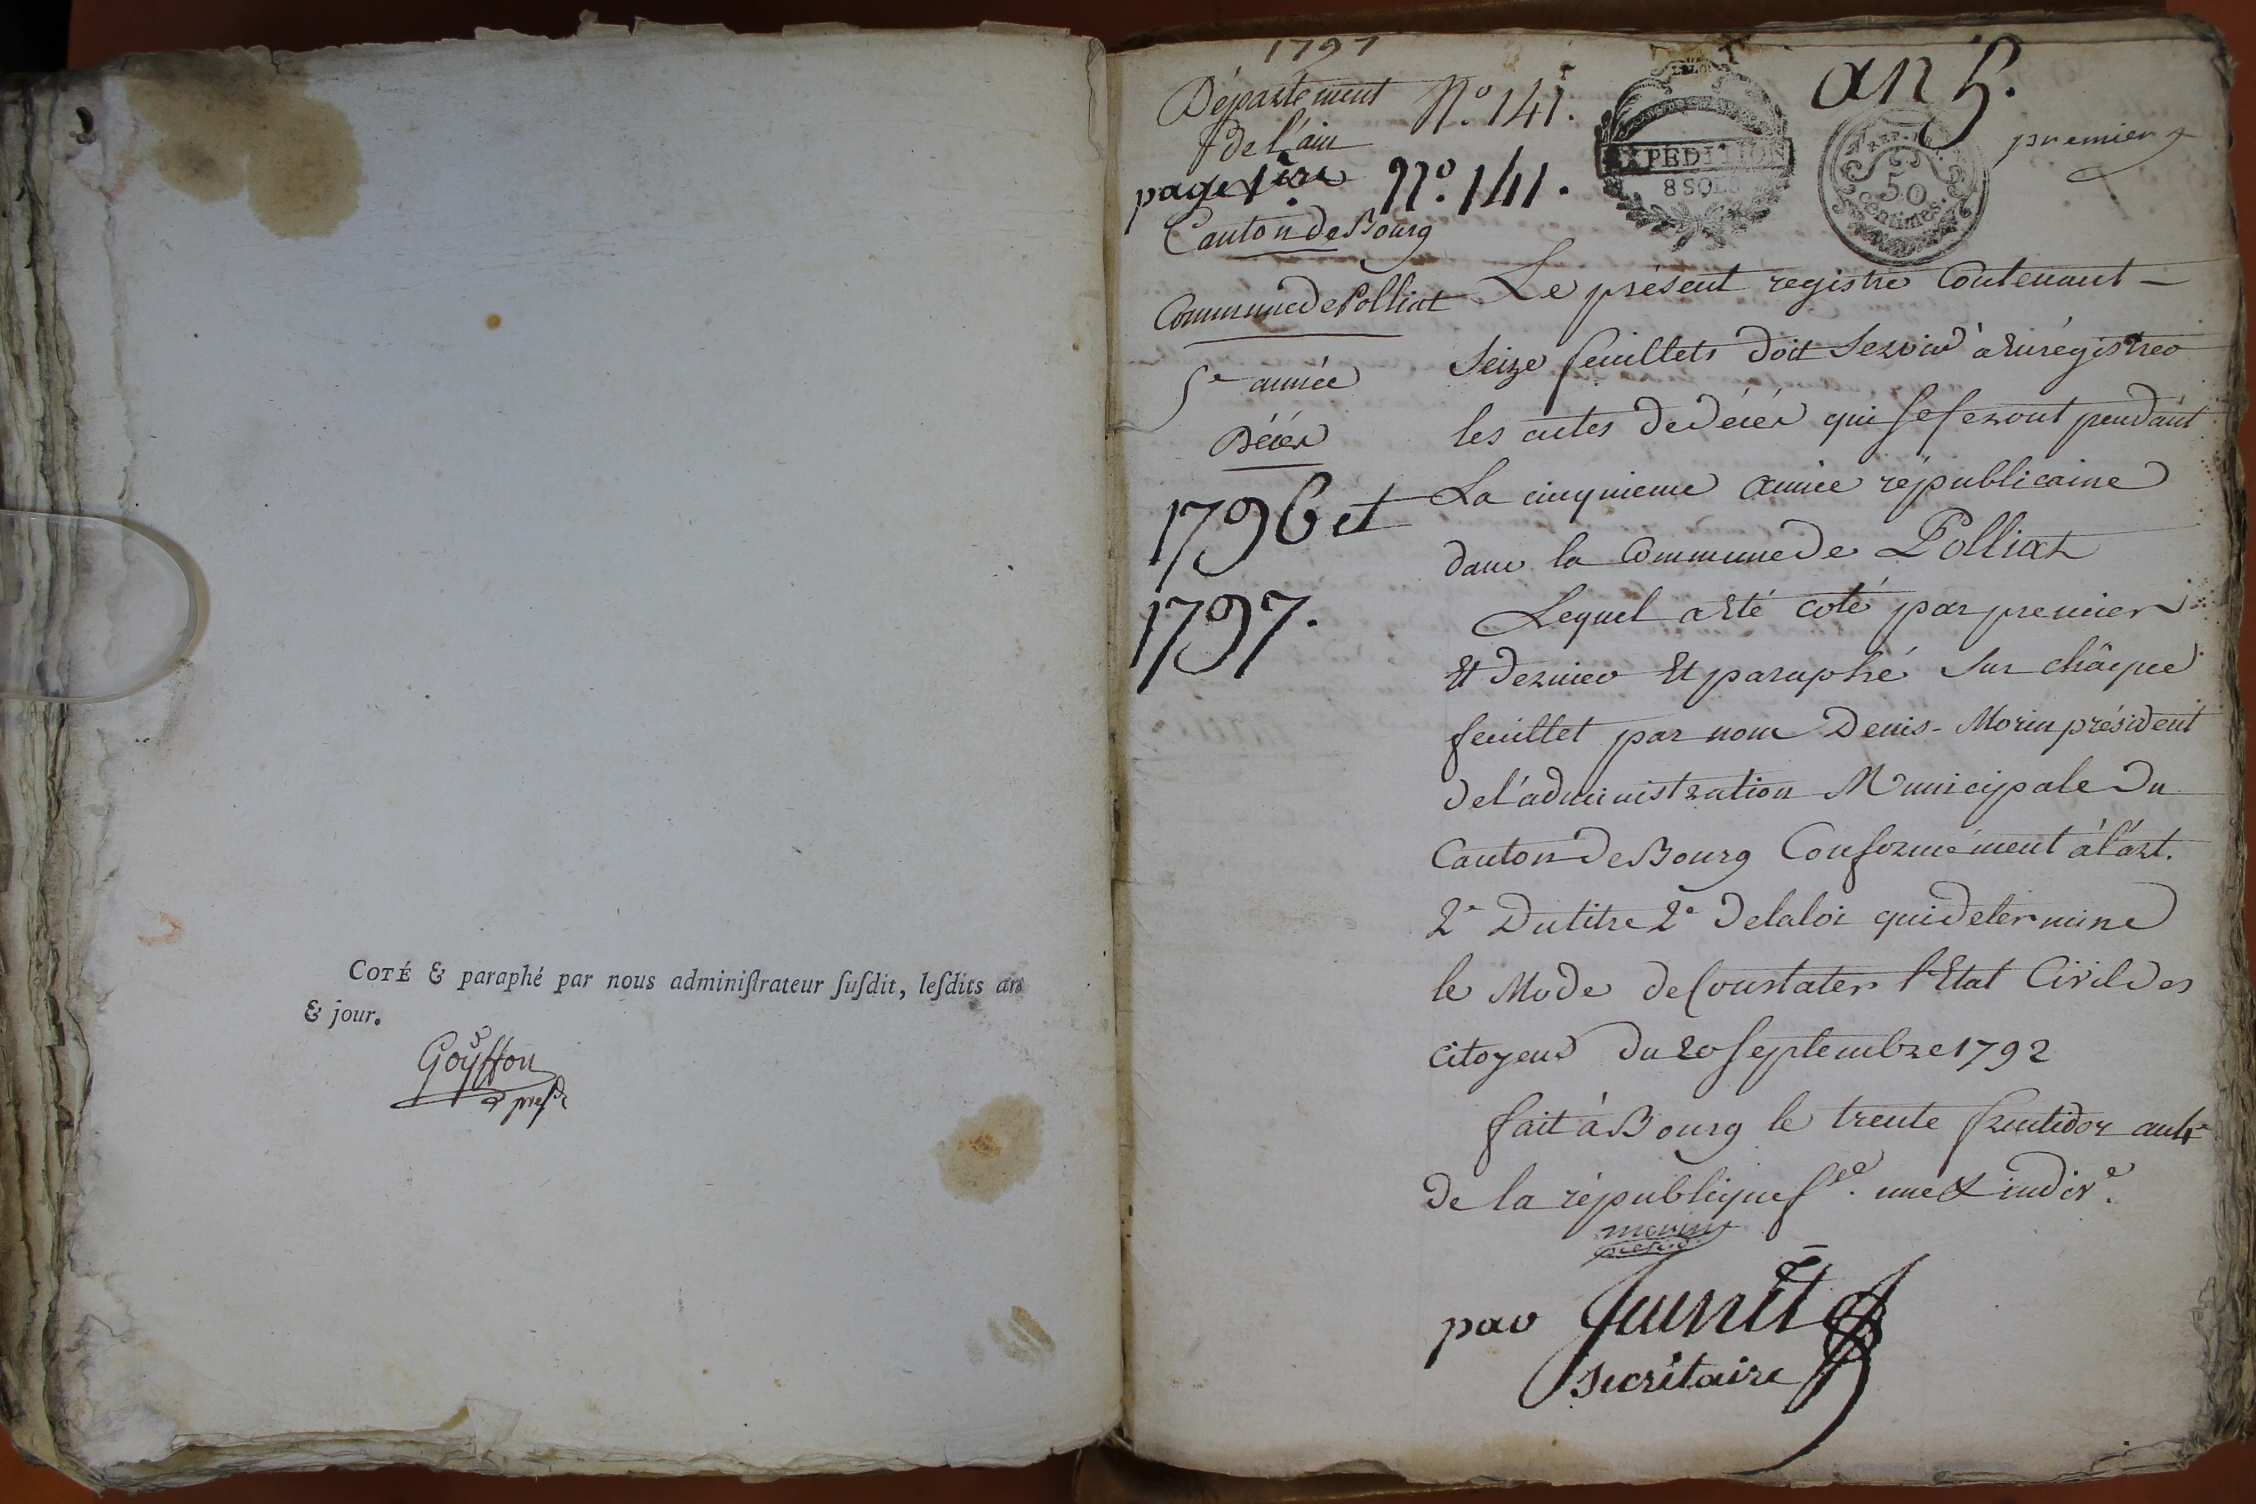 COTÉ & paraphé par nous adminiſtrateur ſuſdit, leſdits an
& jour.
Goyffon
presdt
1797
Département
de l'ain
N.º 141.
an 5.
premier
page 1ère
N.º 141.
EXPÉDITION
8 SOLS
REP. FRA.
50
centimes.
Canton de Bourg
Commune de Polliat
5e année
Décés
1796 et
1797.
Le présent registre Contenant
Seize feuillets doit servir à Enrégistrer
les actes de décés qui se feront pendant
La cinquieme année républicaine
dans la Commune de Polliat
Lequel a Eté coté par premier
Et dernier Et paraphé sur châque
feuillet par nous Denis-Morin président
de l'administration Municipale du
Canton de Bourg Conformément à l'art.
2e du titre 2e de la loi qui determine
le Mode de Constater l'Etat Civil des
citoyens du 20 septembre 1792
fait à Bourg le trente fructidor an 4e
de la république fse. une & indive.
morin
presid.
par
secrétaire